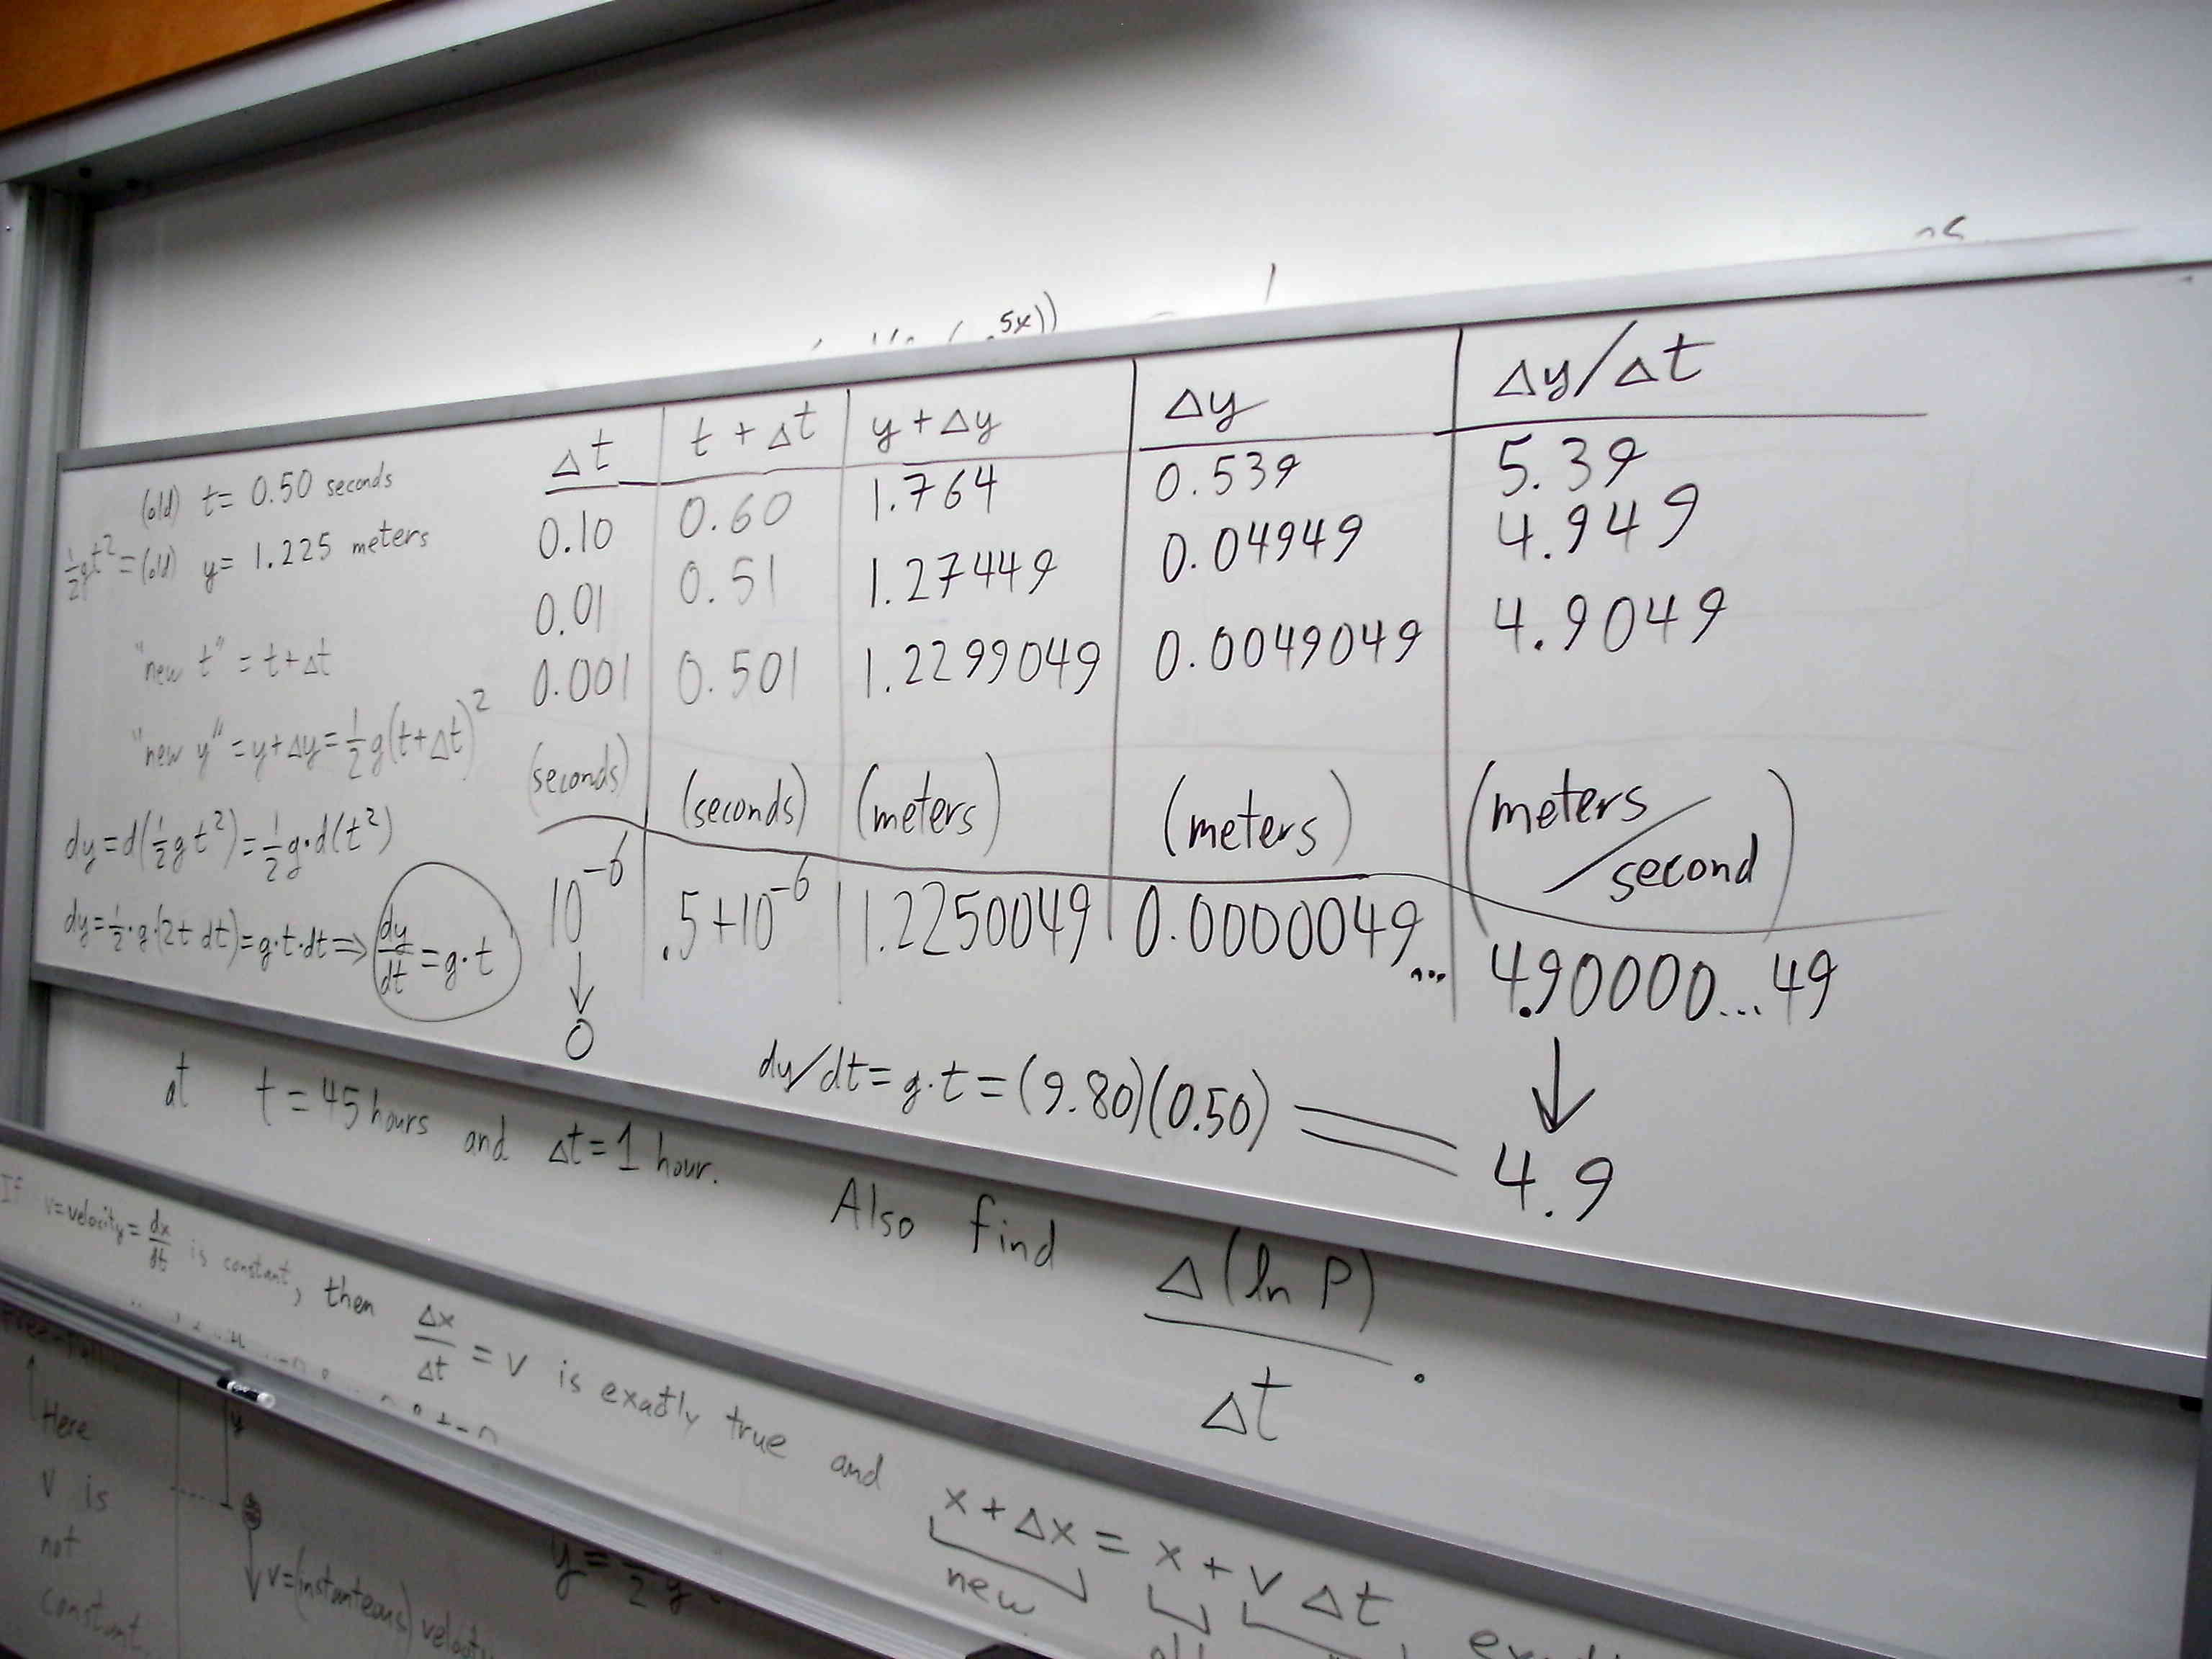 5x))
(old) t = 0.50 seconds
½gt² = (old) y = 1.225 meters
"new t" = t+Δt
"new y" = y+Δy = ½g(t+Δt)²
dy = d(½gt²) = ½g·d(t²)
dy = ½·g·(2t dt) = g·t·dt ⇒ dy/dt = g·t
Δt | t+Δt | y+Δy | Δy | Δy/Δt
0.10 | 0.60 | 1.764 | 0.539 | 5.39
0.01 | 0.51 | 1.27449 | 0.04949 | 4.949
0.001 | 0.501 | 1.2299049 | 0.0049049 | 4.9049
(seconds) | (seconds) | (meters) | (meters) | (meters/second)
10⁻⁶ | .5+10⁻⁶ | 1.2250049 | 0.0000049... | 4.90000...49
↓ ↓
0
dy/dt = g·t = (9.80)(0.50) = 4.9
at t = 45 hours and Δt = 1 hour.
Also find Δ(ln P)/Δt.
If v=velocity=dx/dt is constant, then Δx/Δt = v is exactly true and x+Δx = x+vΔt
new
Here
v is
not
constant.
y
v=(instanteous)
y =